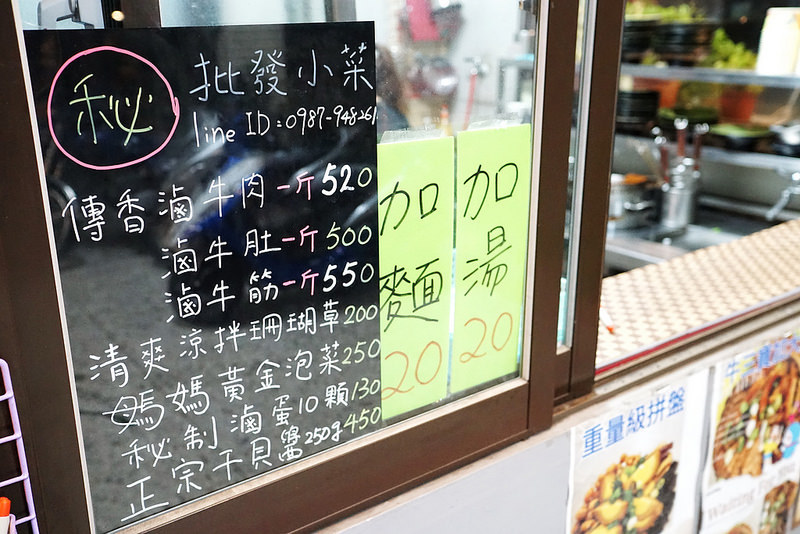 秘 批發小菜
line ID：0987-948261
傳香滷牛肉一斤520
滷牛肚一斤500
滷牛筋一斤550
清爽涼拌珊瑚草200
媽媽黃金泡菜250
秘制滷蛋10顆130
正宗干貝醬250g450
加麵20
加湯20
重量級拼盤